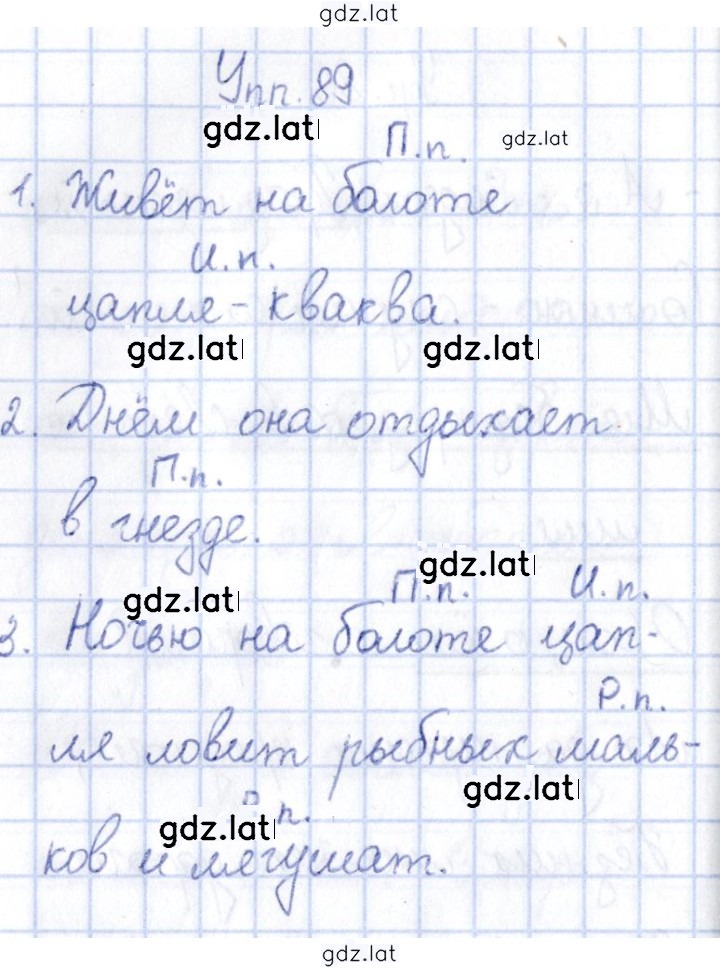 gdz.lat
Упп. 89
gdz.lat
П.п.
gdz.lat
1. Живёт на болоте
И.п.
цапля - кваква.
gdz.lat
gdz.lat
2. Днём она отдыхает
П.п.
в гнезде.
gdz.lat
gdz.lat
П.п. И.п.
3. Ночью на болоте цап-
Р.п.
ля ловит рыбных маль-
gdz.lat
gdz.lat
Р.п.
ков и лягушат.
gdz.lat